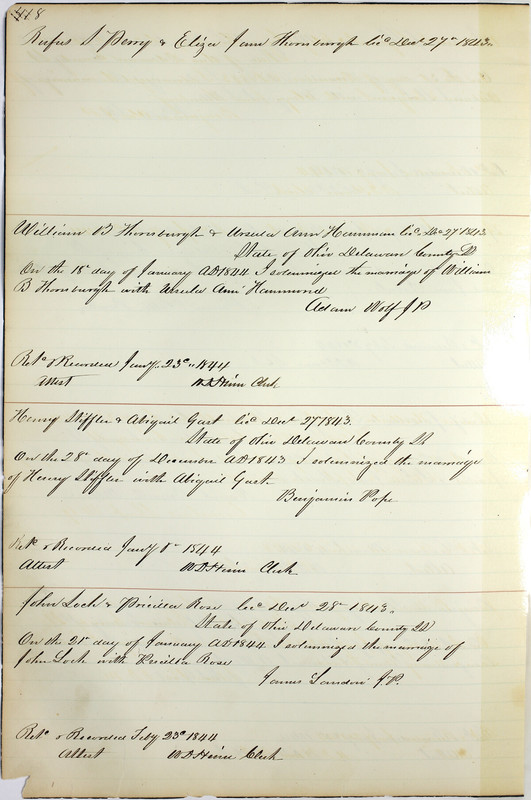 418
Rufus S Perry & Eliza Jane Thornburgh Lic Dec 27th 1843.
William B Thornburgh & Ursula Ann Hamman Lic. Dec 27 1843
State of Ohio Delaware County SS
On the 18th day of January AD 1844 I solemnized the marriage of William
B Thornburgh with Ursula Ann Hammond
Adam Wolf JP
Retd & Recorded Jany. 23d 1844
Attest Clerk
Henry Stiffler & Abigail Gast Lic Dec 27 1843.
State of Ohio Delaware County SS
On the 28th day of December AD 1843 I solemnized the marriage
of Henry Stiffler with Abigail Gast
Benjamin Pope
Retd & Recorded Jany 8th 1844
Attest Clerk
John Loch & Pricilla Rose Lic Dec 28th 1843.
State of Ohio Delaware County SS
On the 21st day of January AD 1844 I solemnized the marriage of
John Loch with Pricilla Rose
James Landon J.P.
Retd & Recorded Feby 23d 1844
Attest Clerk